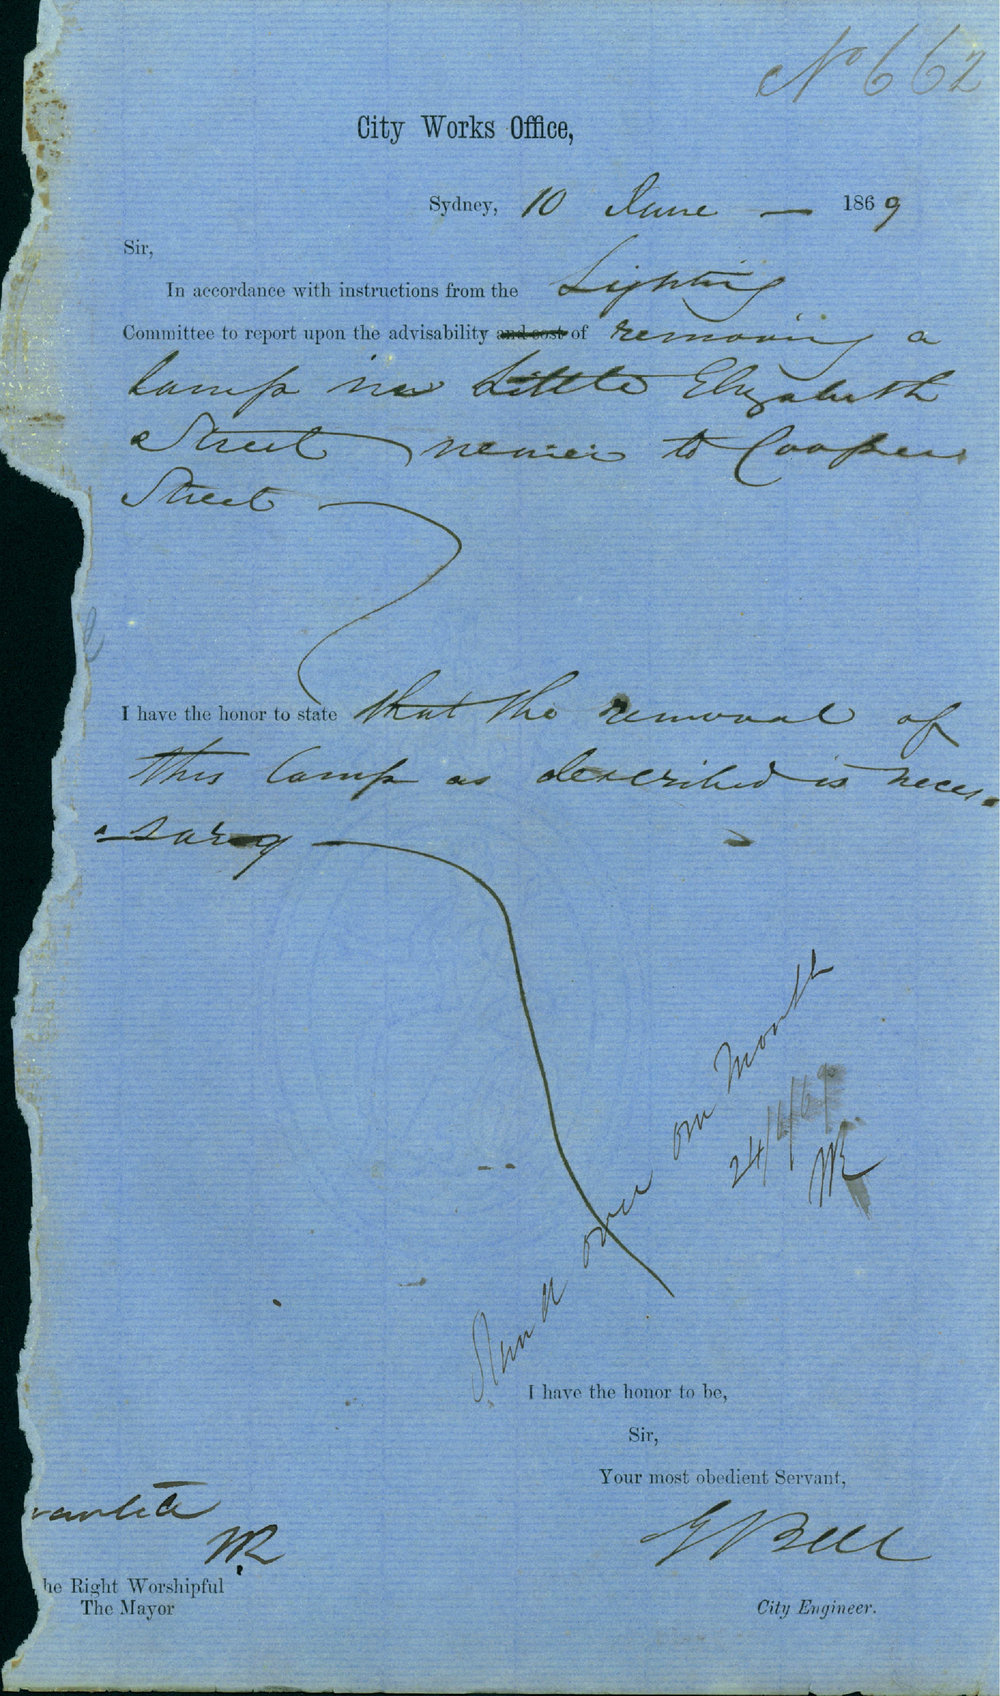 No 662
City Works Office,
Sydney, 10 June — 1869
Sir,
In accordance with instructions from the Lighting
Committee to report upon the advisability and cost of removing a
lamp in Little Elizabeth
Street nearer to Cooper
Street
I have the honor to state that the removal of
this lamp as described is neces-
-sary
Stand over one Month
24/6/69
I have the honor to be,
Sir,
Your most obedient Servant,
E Bell
he Right Worshipful
The Mayor
City Engineer.